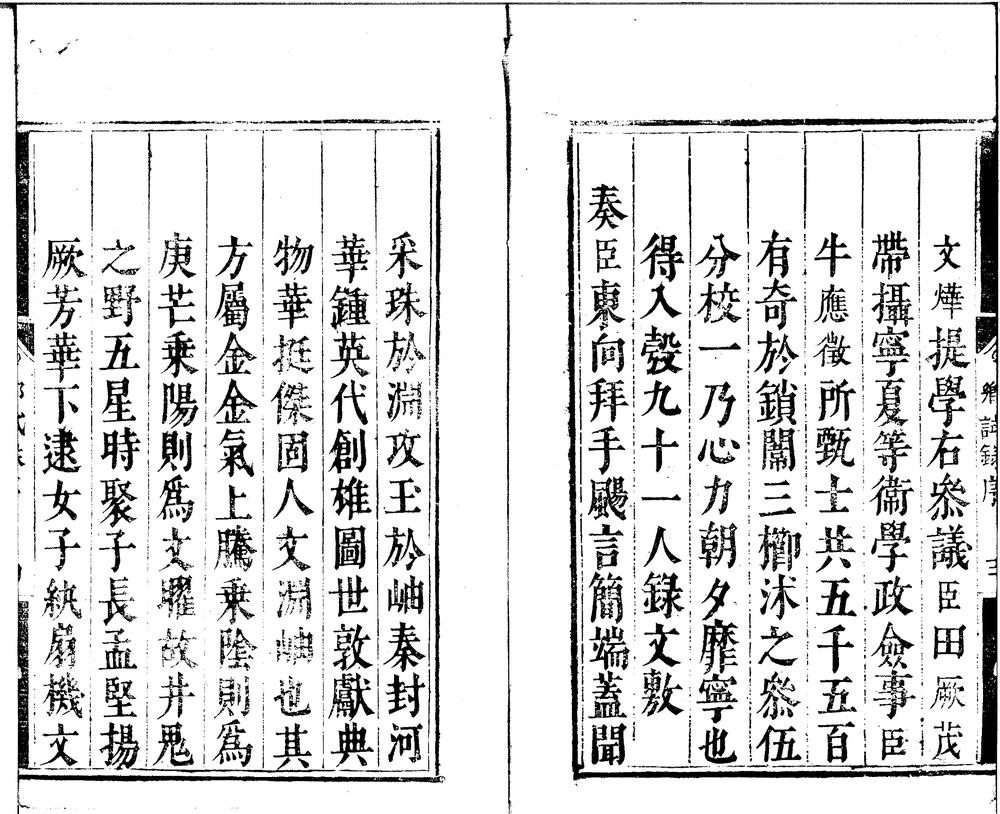 鄉試錄序
文燁提學右叅議臣田厥茂
帶攝寧夏等衞學政僉事臣
牛應徵所甄士共五千五百
有奇於鎖闈三櫛沐之叅伍
分校一乃心力朝夕靡寧也
得入彀九十一人録文敷
奏臣東向拜手颺言簡端蓋聞
采珠於淵攻玉於岫秦封河
華鍾英代創雄圖世敦獻典
物華挺傑固人文淵岫也其
方屬金金氣上騰乘陰則爲
庚芒乘陽則爲文曜故井鬼
之野五星時聚子長孟堅揚
厥芳華下逮女子紈扇機文